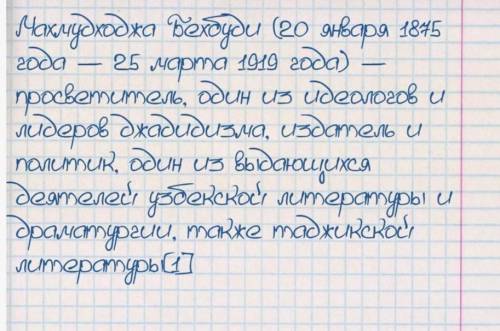 Махмудходжа Бехбуди (20 января 1875
года — 25 марта 1919 года) —
просветитель, один из идеологов и
лидеров джадидизма, издатель и
политик, один из выдающихся
деятелей узбекской литературы и
драматургии, также таджикской
литературы[1]